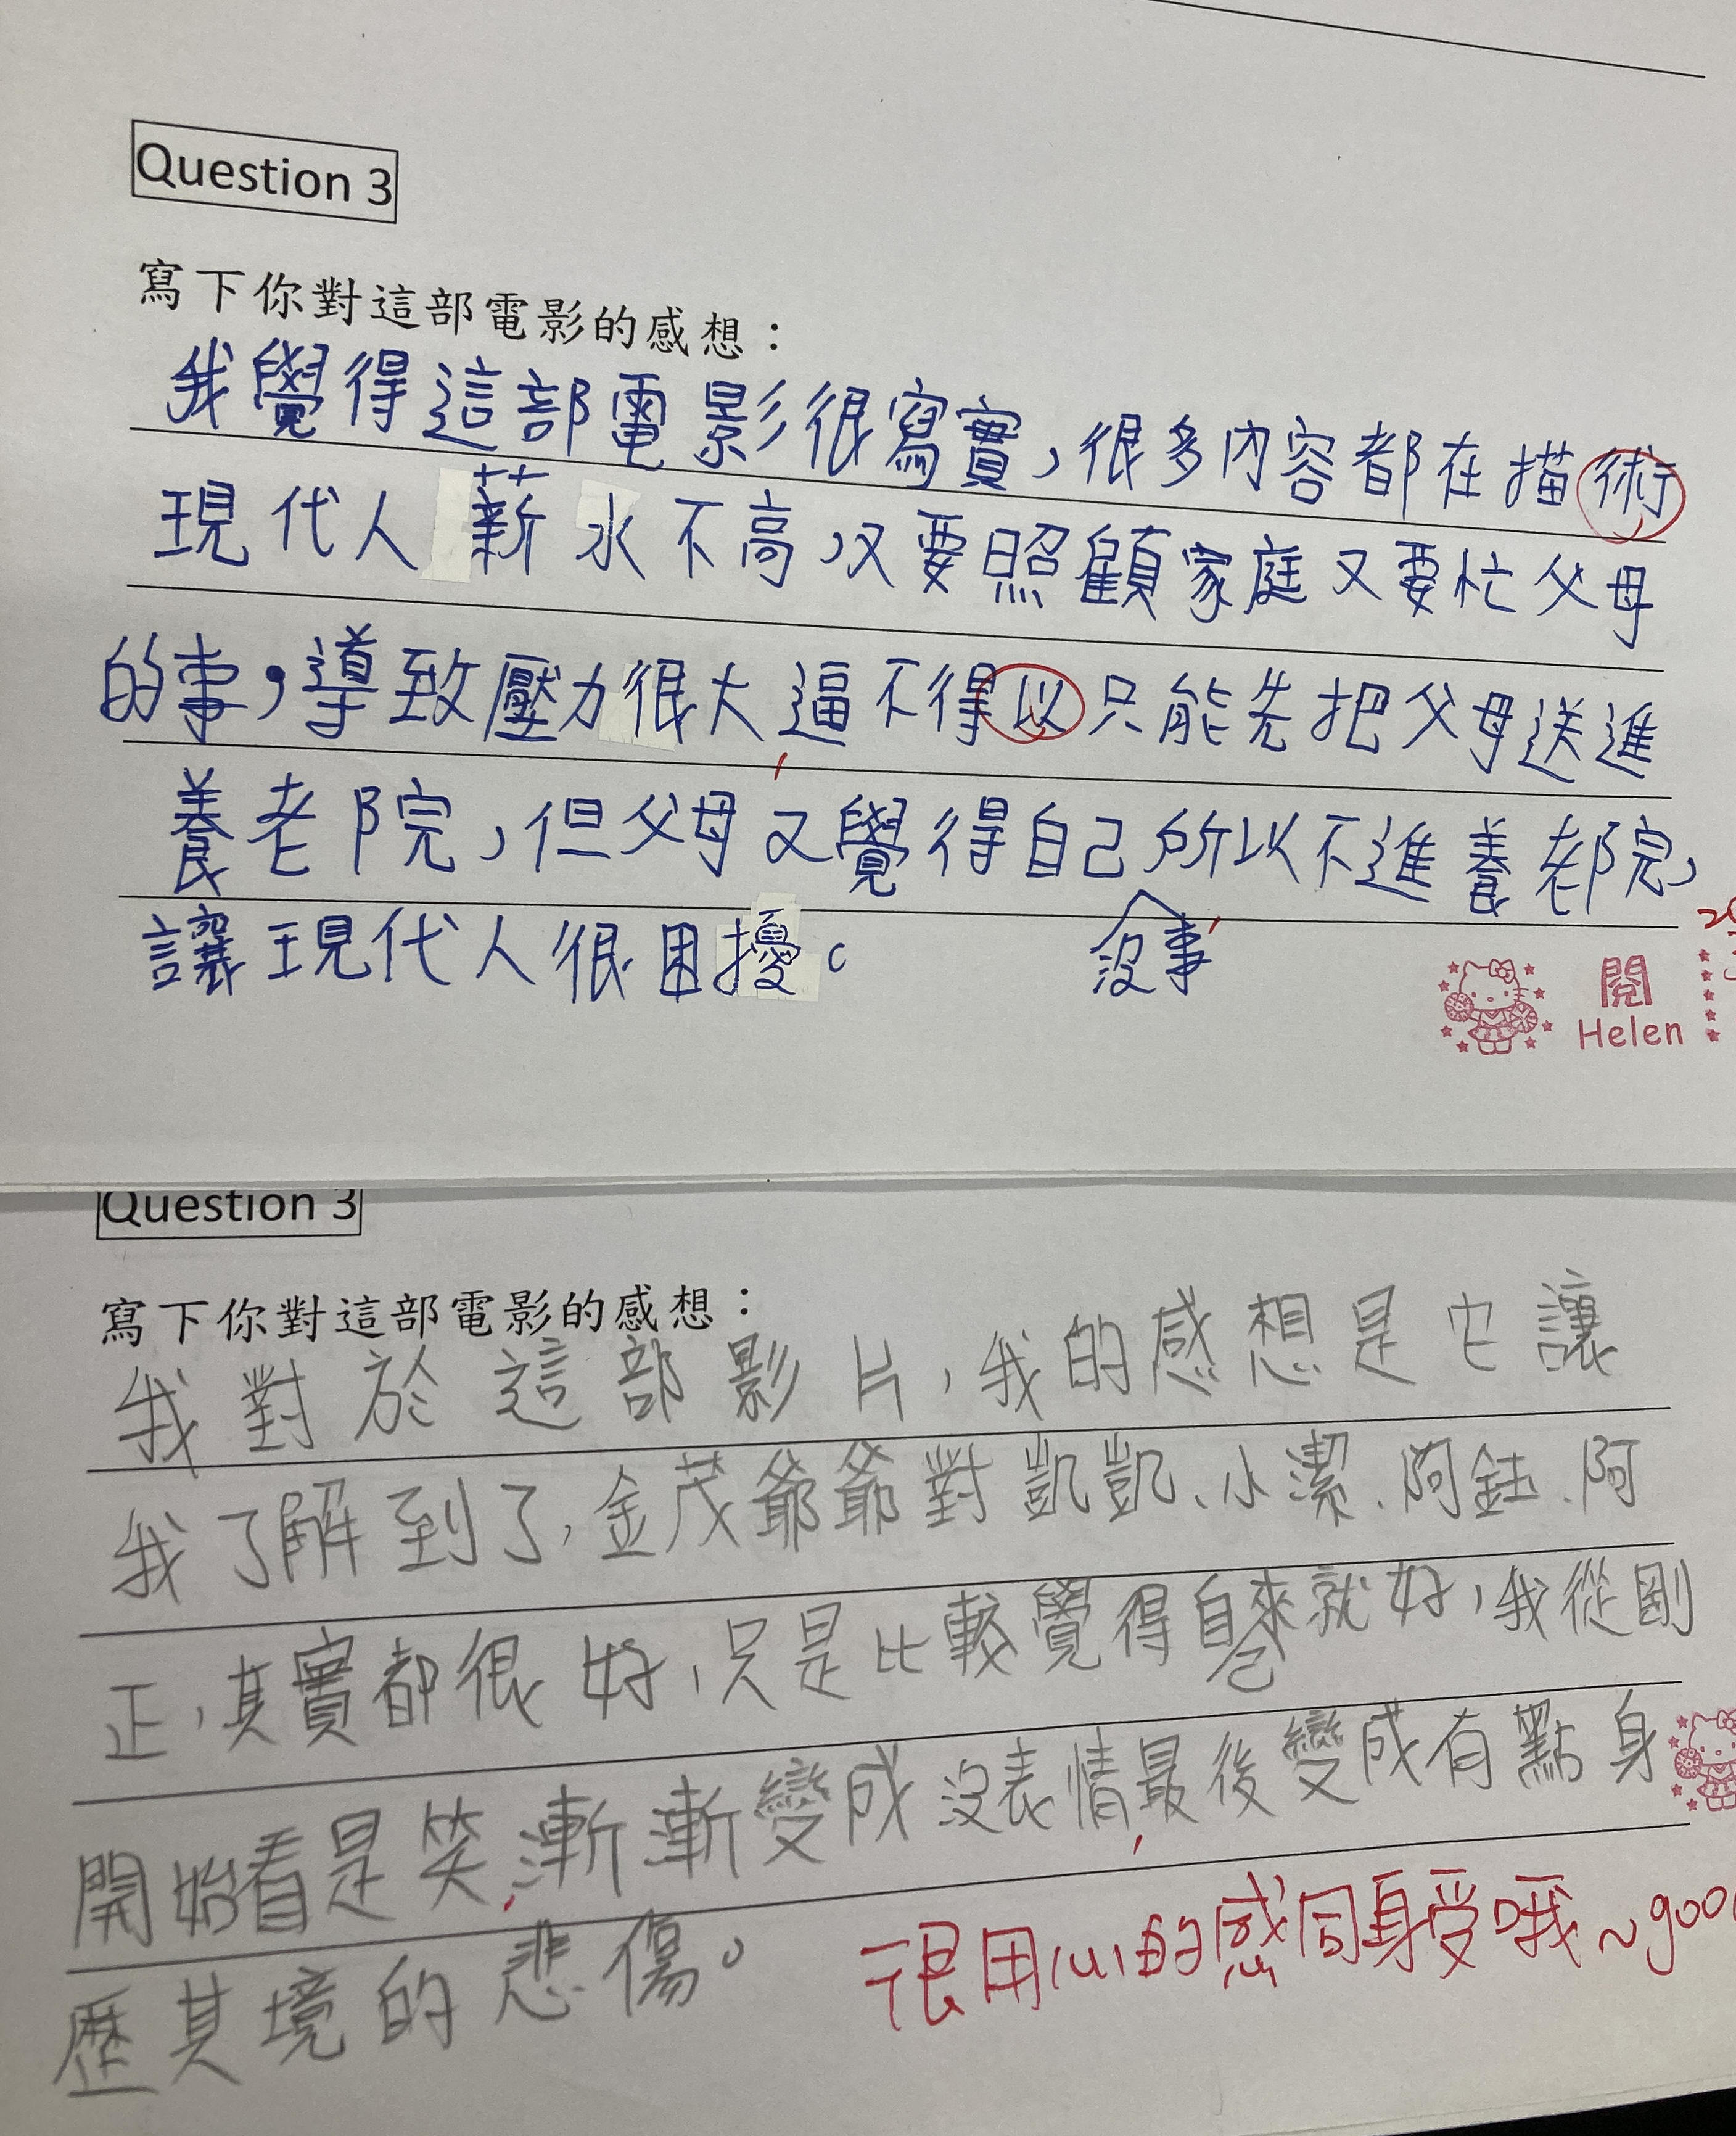 Question 3
寫下你對這部電影的感想：
我覺得這部電影很寫實，很多內容都在描術
現代人薪水不高，又要照顧家庭又要忙父母
的事，導致壓力很大逼不得以只能先把父母送進
養老院，但父母又覺得自己沒事所以不進養老院，
讓現代人很困擾。
閱
Helen
Question 3
寫下你對這部電影的感想：
我對於這部影片，我的感想是它讓
我了解到了，金茂爺爺對凱凱、小潔、阿鈺、阿
正，其實都很好，只是比較覺得自己來就好，我從剛
開始看是笑，漸漸變成沒表情，最後變成有點身
歷其境的悲傷。
很用心的感同身受哦~goo